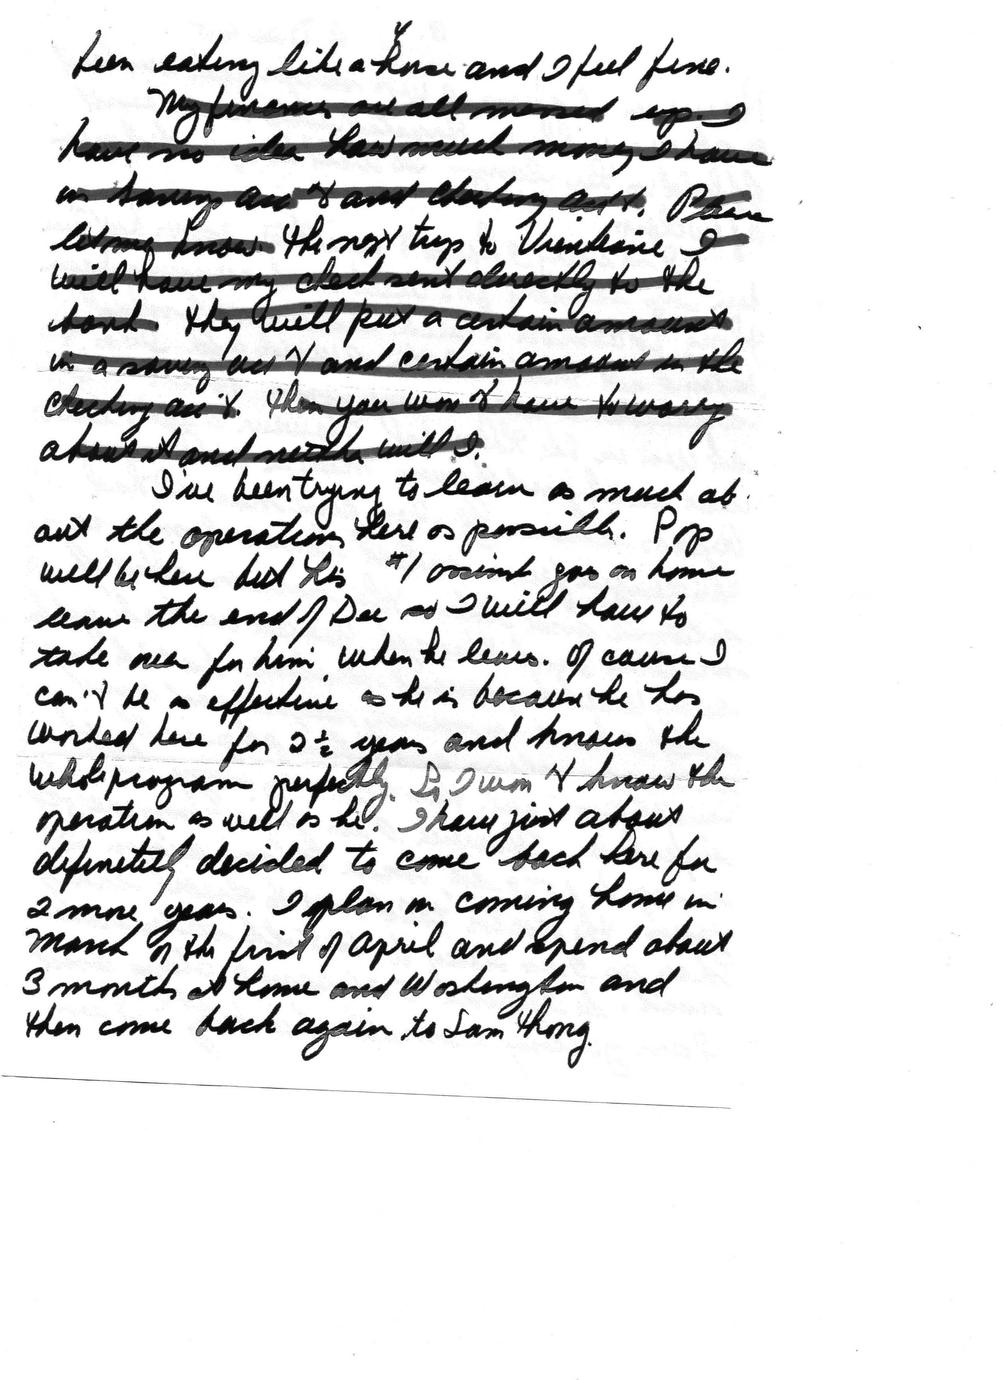 been eating like a horse and I feel fine.
My finances are all messed up. I
have no idea how much money I have
in savings acc't and checking acc't. Please
let me know. The next trip to Vientiane I
will have my check sent directly to the
bank they will put a certain amount
in a saving acc't and certain amount in the
checking acc't. Then you won't have to worry
about it and neither will I.
I've been trying to learn as much ab-
out the operations here as possible. Pop
will be here but his #1 assinst goes on home
leave the end of Dec so I will have to
take over for him when he leaves. Of cause I
can't be as effective as he is because he has
worked here for 2½ years and knows the
whole program perfectly. So I won't know the
operation as well as he. I have just about
definetely decided to come back here for
2 more years. I plan on coming home in
March or the first of April and spend about
3 months at home and Washington and
then come back again to Sam Thong.